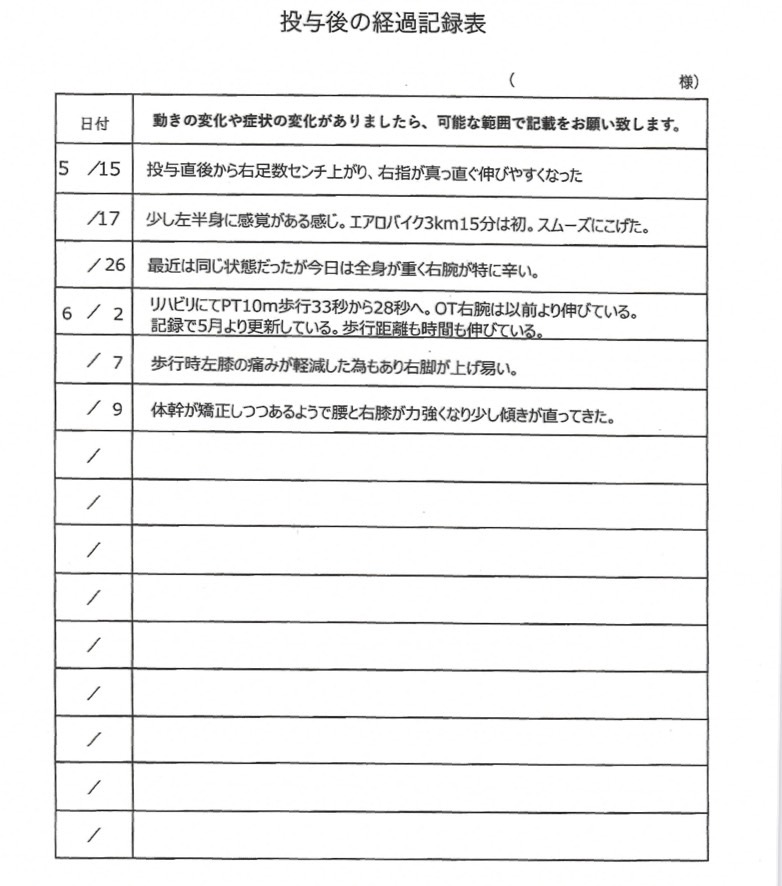 投与後の経過記録表
（ 様）
日付 動きの変化や症状の変化がありましたら、可能な範囲で記載をお願い致します。
5 /15 投与直後から右足数センチ上がり、右指が真っ直ぐ伸びやすくなった
/17 少し左半身に感覚がある感じ。エアロバイク3km15分は初。スムーズにこげた。
/26 最近は同じ状態だったが今日は全身が重く右腕が特に辛い。
6 / 2 リハビリにてPT10m歩行33秒から28秒へ。OT右腕は以前より伸びている。
記録で5月より更新している。歩行距離も時間も伸びている。
/ 7 歩行時左膝の痛みが軽減した為もあり右脚が上げ易い。
/ 9 体幹が矯正しつつあるようで腰と右膝が力強くなり少し傾きが直ってきた。
/
/
/
/
/
/
/
/
/